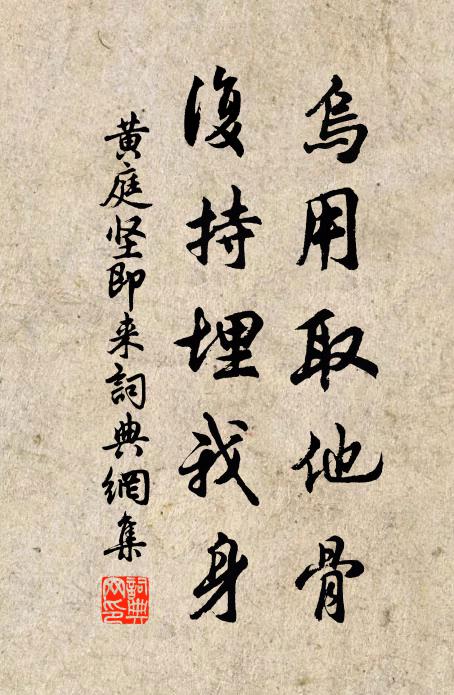 烏用取他骨
復持埋我身
黄庭坚即来詞典網集
詞典
网印